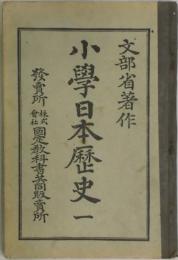 文部省著作
小學日本歴史 一
發賣所 株式會社 國定教科書共同販賣所